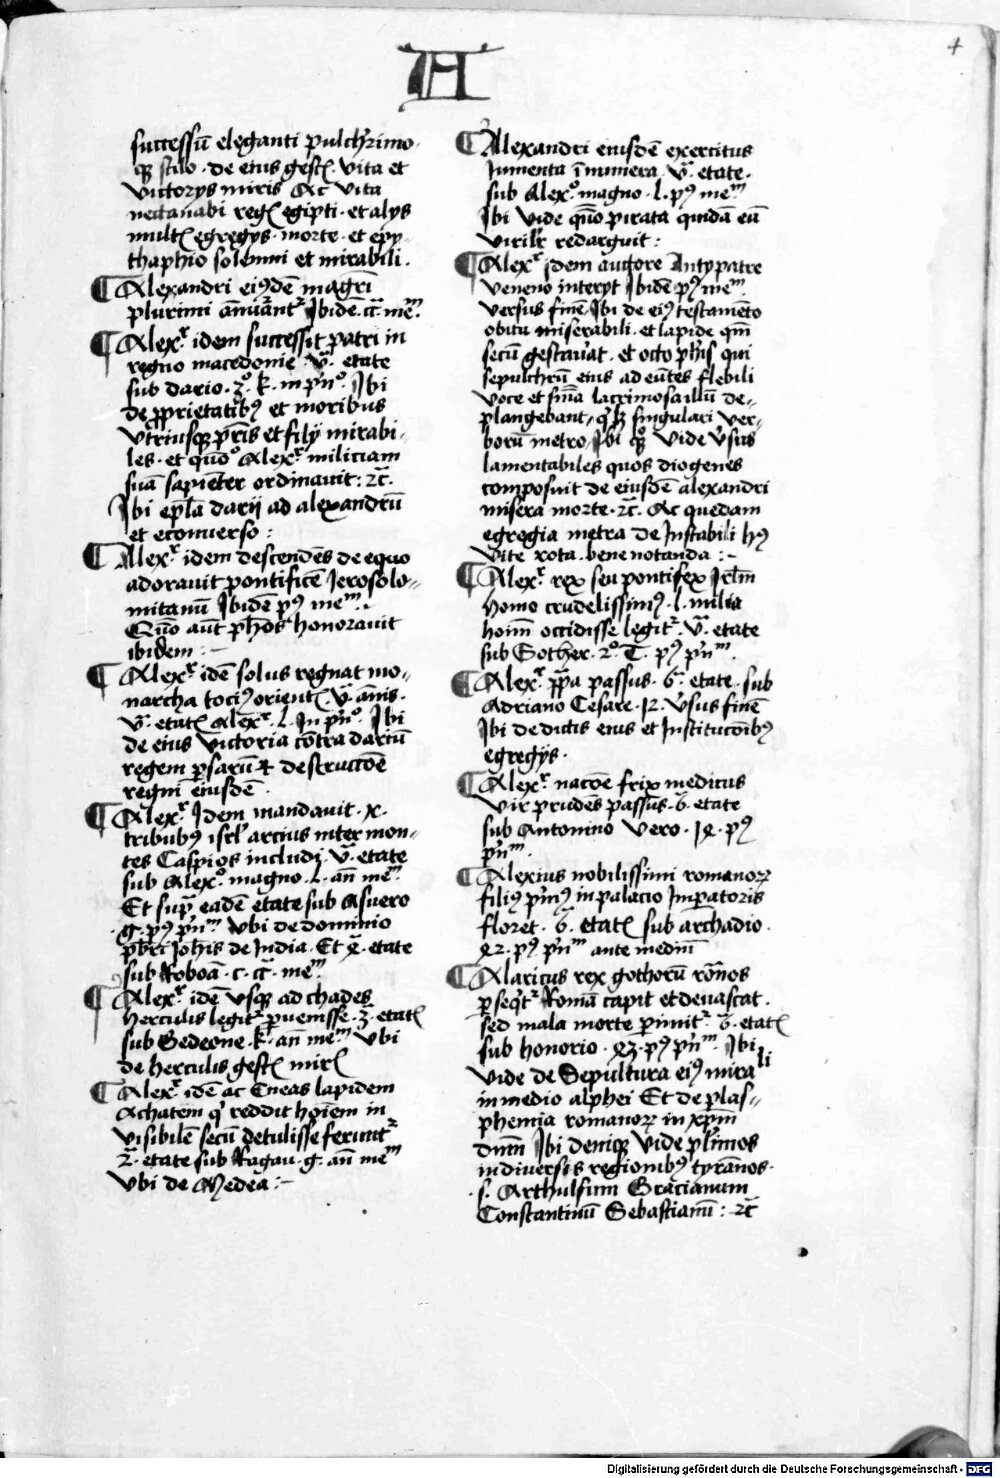 4
A
successū eleganti pulchrimo
qꝫ stilo · de eius gestꝭ · vita et
victorijs miris Ac vita
nectanabi regꝭ egipti · et alijs
multꝭ egregijs · morte · et epy-
thaphio solemni et mirabili ·
¶ Alexandri eiꝰdē magr̄i
plurimi ānūantʳ Ibidē · cͣ · meᵐ
¶ Alexʳ idem successit patri in
regno macedonie · vͣ · etate
sub dario · 3º · k · in p̄nº · Ibi
de ꝓprietatibꝰ et moribus
vtriusqꝫ pr̄is et filij mirabi-
les · et quōº Alexʳ miliciam
suā sapiēter ordinauit : ⁊c̄ ·
Ibi epl̄a darij ad alexandrū
et econuerso :
¶ Alexʳ idem descendēs de equo
adorauit pontificē Ierosolo-
mitanū Ibidē pꝰ meᵐ ·
Quō aūt ph̄os honorauit
ibidem : -
¶ Alexʳ idē solus regnat mo-
narcha tociꝰ orientꝭ · v · annis ·
vͣ · etatꝭ Alexʳ · l · In p̄nº · Ibi
de eius victoria cōtra dariū
regem ꝑsarū ⁊ destructōē
regni eiusdē ·
¶ Alexʳ Idem mandauit · x ·
tribubꝰ isrl̄ arcius inter mon-
tes Caspios includi · vͣ · etate
sub Alexº · magno · l · an̄ meᵐ
Et supͣ eadē etate sub Asuero
· g · pꝰ p̄nᵐ · vbi de dominio
pb̄ri Joh̄is de India · Et 4ͣ · etate
sub Roboā · c · cͣ · meᵐ
¶ Alexʳ · idē vsqꝫ ad chades
herculis legitʳ ꝑuenisse · 3ͣ · etatꝭ
sub Gedeone · k · an̄ meᵐ vbi
de herculis gestꝭ mirꝭ
¶ Alexʳ · idē ac Eneas lapidem
Achatem qͥ reddit hoīem in
visibilē secū detulisse feruntʳ
2ͣ · etate sub Ragau · g · an̄ meᵐ
vbi de Medea : -
¶ Alexandri eiusdē exercitus
Iumenta īnumera · vͣ · etate ·
sub Alexº · magno · l · pꝰ meᵐ
Ibi vide quōo pirata quidā eū
virilr̄ redarguit :
¶ Alexʳ idem auctore Antypatre
veneno interijt Ibidē pꝰ meᵐ
versus finē Ibi de eiꝰ testamēto
obitu miserabili · et lapide quē
secū gestauͥat · et octo ph̄is qui
sepulchrū eius adeūtes flebili
voce et sm̄a lacrimosa illū de-
plangebant, qͥlꝫ singulari ver-
borū metro, Ibi qꝫ vide v̄sus
lamentabiles quos diogenes
composuit de eiusdē alexandri
misera morte · ⁊c̄ · Ac quedam
egregia metra de Instabili hꝰ
vite rota · bene notanda : -
¶ Alexʳ · rex seu pontifex Irl̄m
homo crudelissimꝰ · l · milia
hoīm occidisse legitʳ · vͣ · etate
sub Sother · 2º · T · pꝰ p̄nᵐ ·
¶ Alexʳ · pp̄a passus · 6ͣ · etate · sub
Adriano Cesare · 12 · v̄sus finē
Ibi de dictis eius et Institucōibꝰ
egregijs ·
¶ Alexʳ · nacōe frix medicus
vir prudēs passus · 6ͣ · etate
sub Antonino Vero · 14 · pꝰ
p̄nᵐ ·
¶ Alexius nobilissimi romanoꝝ
filiꝰ p̄mꝰ in palacio Imꝑatoris
floret · 6ͣ · etatꝭ sub archadio ·
42 · pꝰ p̄nᵐ ante mediū
¶ Alaricus rex gothorū rōnos
ꝑseqͥtʳ Romā capit et deuastat ·
sed mala morte ꝑimitʳ · 6ͣ · etatꝭ
sub honorio · 43 · pꝰ p̄nᵐ · Ibi
vide de Sepultura eiꝰ mirali
in medio alphei Et de plas-
phemia romanoꝝ in xp̄m
dnm̄ Ibi deniqꝫ vide pl̄imos
in diuersis regionibꝰ tyrānos ·
· s · Arthulfum Gracianum
Constantinū Sebastianū : ⁊c̄
Digitalisierung gefördert durch die Deutsche Forschungsgemeinschaft - DFG